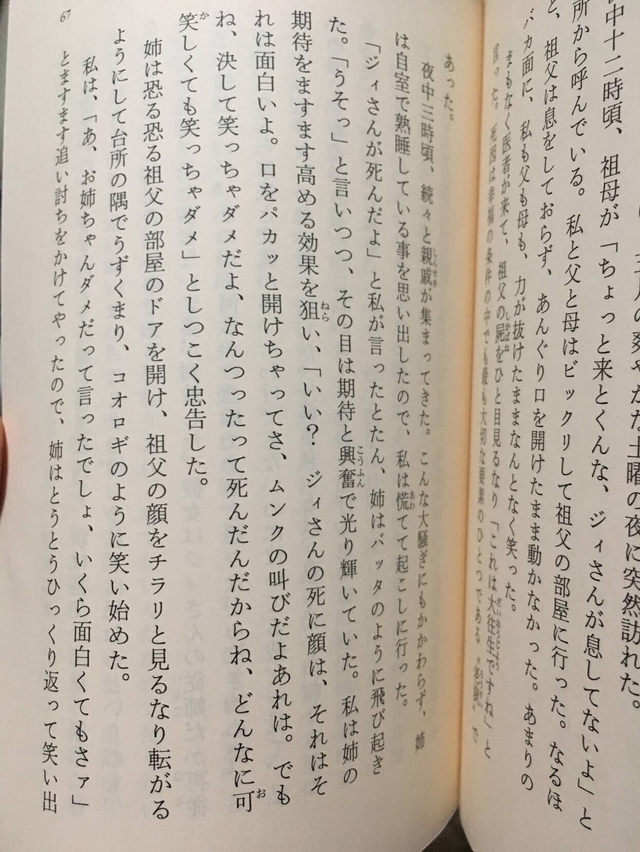 の爽やかな土曜の夜に突然訪れた。
中十二時頃、祖母が「ちょっと来とくんな、ジィさんが息してないよ」と
所から呼んでいる。私と父と母はビックリして祖父の部屋に行った。なるほ
と、祖父は息をしておらず、あんぐり口を開けたまま動かなかった。あまりの
バカ面に、私も父も母も、力が抜けたままなんとなく笑った。
まもなく医者が来て、祖父の屍をひと目見るなり「これは大往生ですね」と
言った。死因は幸福の条件の中でも最も大切な要素のひとつである〝老衰〟で
あった。
夜中三時頃、続々と親戚が集まってきた。こんな大騒ぎにもかかわらず、姉
は自室で熟睡している事を思い出したので、私は慌てて起こしに行った。
「ジィさんが死んだよ」と私が言ったとたん、姉はバッタのように飛び起き
た。「うそっ」と言いつつ、その目は期待と興奮で光り輝いていた。私は姉の
期待をますます高める効果を狙い、「いい? ジィさんの死に顔は、それはそ
れは面白いよ。口をパカッと開けちゃってさ、ムンクの叫びだよあれは。でも
ね、決して笑っちゃダメだよ、なんつったって死んだんだからね、どんなに可
笑しくても笑っちゃダメ」としつこく忠告した。
姉は恐る恐る祖父の部屋のドアを開け、祖父の顔をチラリと見るなり転がる
ようにして台所の隅でうずくまり、コオロギのように笑い始めた。
私は、「あ、お姉ちゃんダメだって言ったでしょ、いくら面白くてもさァ」
とますます追い討ちをかけてやったので、姉はとうとうひっくり返って笑い出
67